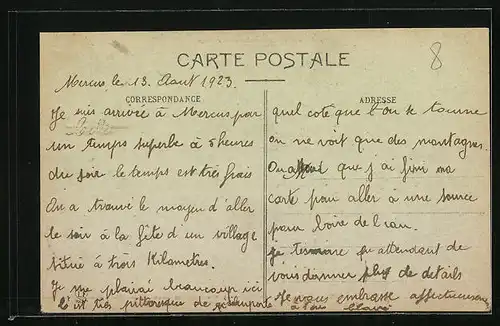 CARTE POSTALE
8
Mercus, le 13. Aout 1923.
CORRESPONDANCE
Je suis arrivée à Mercus, par
un temps superbe à 5 heures
du soir le temps est très frais
On a trouvé le moyen d'aller
le soir à la fête d'un village
situé à trois Kilometres.
Je me plairai beaucoup ici
C'est très pittoresque de
ADRESSE
quel coté que l'on se tourne
on ne voit que des montagnes.
On que j'ai fini ma
carte pour aller à une source
pour boire de l'eau.
Je termine en attendant de
vous donner plus de details
Je vous embrasse affectueusement